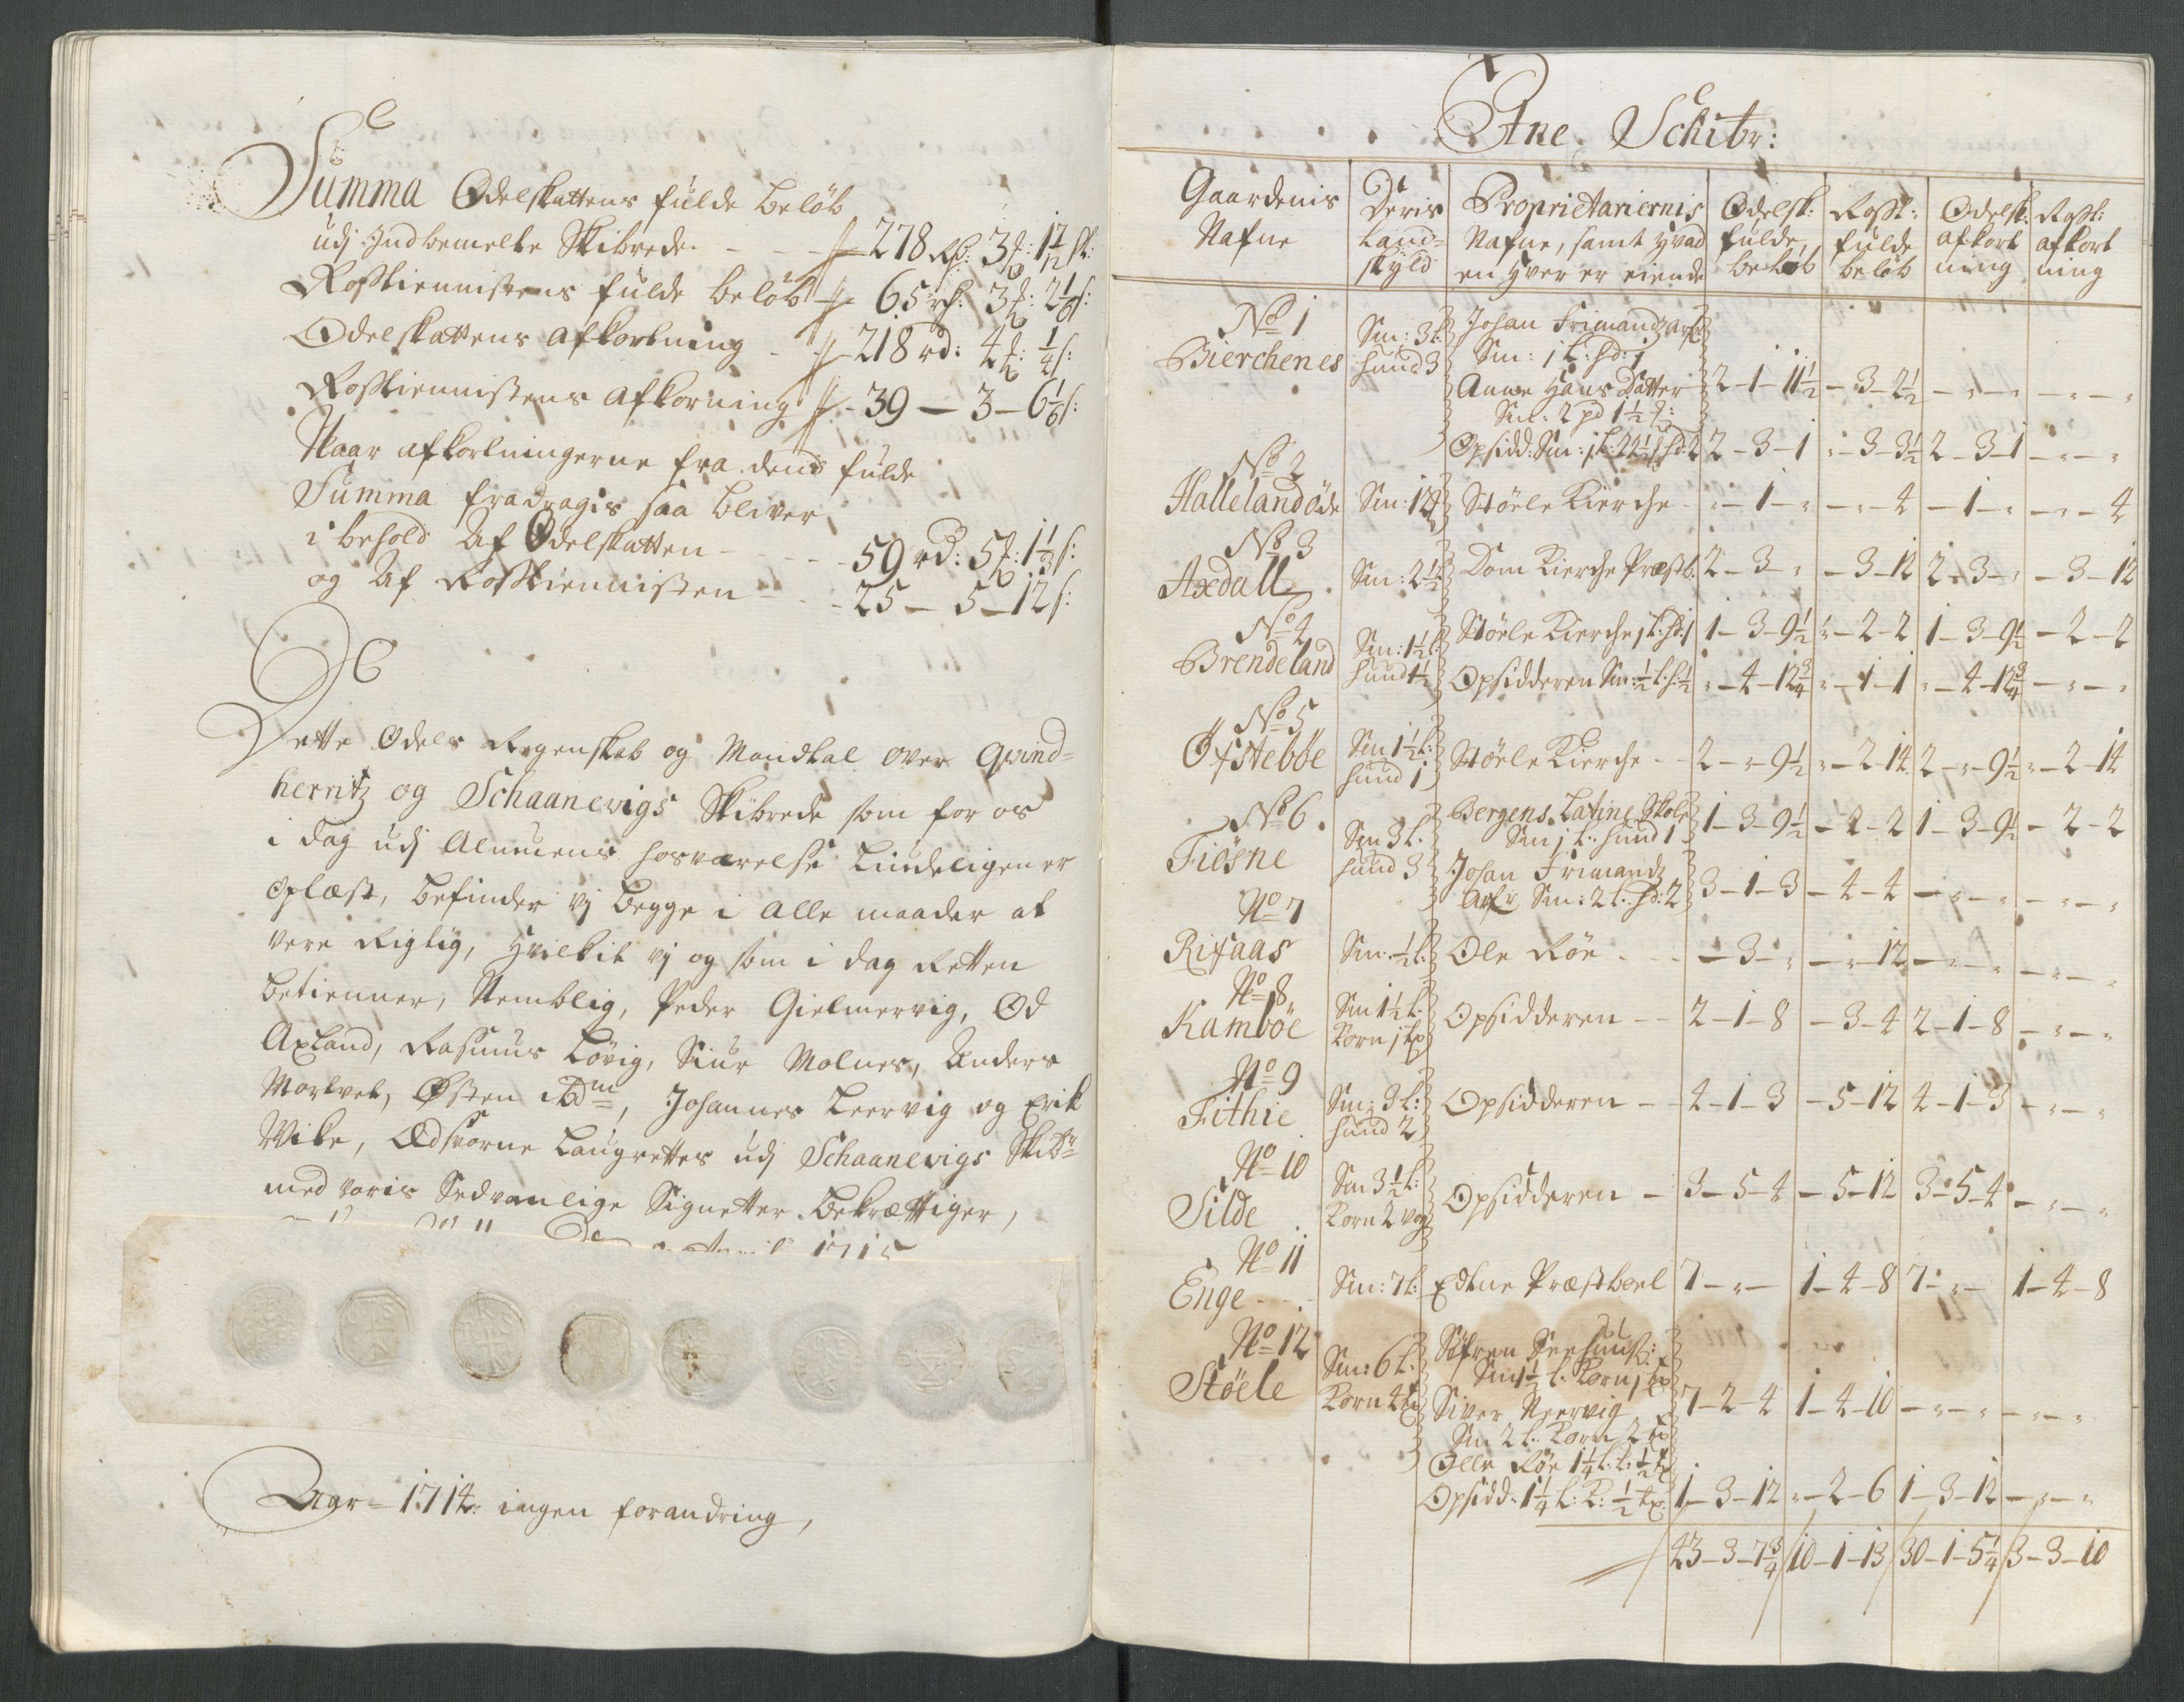 Summa Odelskattens fulde beløb
udj Indbemelte Skibrede - - - 278 Rd: 3 : 1 7/12 s:
Rosstiennistens fulde beløb 65 rd: 3 : 2 1/6 s:
Odelskattens afkortning - 218 rd: 4 : 1/4 s:
Rosstiennistens afkorning - 39 - 3 - 6 1/6 s:
Naar afkortningerne fra dend fulde
Summa fradragis saa bliver
i behold Af Odelskatten - - - 59 rd: 5 : 1 1/3 s:
og Af Rosstiennisten - - - 25 - 5 - 12 s:
Dette Odels Regenskab og Mandtal over Qvind-
herritz og Schaanevigs Skibrede som for os
i dag udj Almuens hosværelse Liudeligen er
Oplæst, befinder vj begge i Alle maader at
være Rigtig, Hvilkit vj og som i dag Retten
betienner, Nemblig, Peder Gielmervig, Od
Axland, Rasmus Løvig, Siur Molnes, Anders
Mortvet, Østen ibdm, Johannes Leervig og Erik
Wike, Edsorne Laugrettes udj Schaanevigs Skibr:
med voris Sedvanlige Signetter bekræfftiger,
April 1715
Aar = 1714 ingen forandring,
Etne Schibr:
Gaardenis Nafne | Deris Land-skyld | Proprietariernis Nafne, samt Hvad en Hver er eiende | Odelsk: fulde beløb | Rosst: fulde beløb | Odelsk: afkortning | Rosst: afkortning
No 1
Bierchenes Sm: 3 l: hund 3 Johan Frimandz Arf:
Sm: 1 l: hd: 1
Anne Hans Datter 2-1-11 1/2 - 3-2 1/2
Sm: 2 pd 1 1/2
Opsidd: Sm: 1 l: 22 1/2 hd: 2 2-3-1 - 3-3 1/2 2-3-1
No 2
Hallelandøde Sm: 12 Støele Kierche - 1 - - - 4 - 1 - - - 4
No 3
Axdall Sm: 2 1/2 Dom Kierche Præstb: 2-3- - 3-12 2-3- - 3-12
No 4
Brendeland Sm: 1 1/2 l: hund 1 1/2 Støele Kierche 1 l: hd: 1 1-3-9 1/2 - 2-2 1-3-9 1/2 - 2-2
Opsidderen Sm: 1/2 l: h: 1/2 - 4-12 3/4 - 1-1 - 4-12 3/4
No 5
Øfstebbe Sm 1 1/2 l: hund 1 Støele Kierche - - 2 - - 9 1/2 - 2-14 2 - - 9 1/2 - 2-14
No 6
Fiøsne Sm 3 l. hund 3 Bergens Latine Skole
Sm 1 l: hund 1 1-3-9 1/2 - 2-2 1-3-9 1/2 - 2-2
Johan Frimandz
Arf: Sm: 2 l. hd: 2 3-1-3 - 4-4
No 7
Rifaas Sm: 1/2 l: Ole Røe - - - 3 - - - 12
No 8
Kamboe Sm 1 1/2 l: Korn 1 tp Opsidderen - - 2-1-8 - 3-4 2-1-8
No 9
Fithie Sm: 3 l: hund 2 Opsidderen - - 4-1-3 - 5-12 4-1-3
No 10
Silde Sm 3 1/2 l: Korn 2 vog Opsidderen - 3-5-4 - 5-12 3-5-4
No 11
Enge - - - Sm: 7 l: Edtne Præstboel 7 - - 1-4-8 7 - - 1-4-8
No 12
Støele Sm: 6 l. Korn 4 tp Søfren Seehuus:
Sm 1 1/2 l. Korn 1 tp
Siver Neervig 7-2-4 1-4-10
Sm 2 l. Korn 2 tp
Olle Røe 1 1/4 l: k: 1/2 tp
Opsidd: 1 1/4 l: K: 1/2 tp: 1-3-12 - 2-6 1-3-12
43-3-7 3/4 10-1-13 30-1-5 1/4 3-3-10